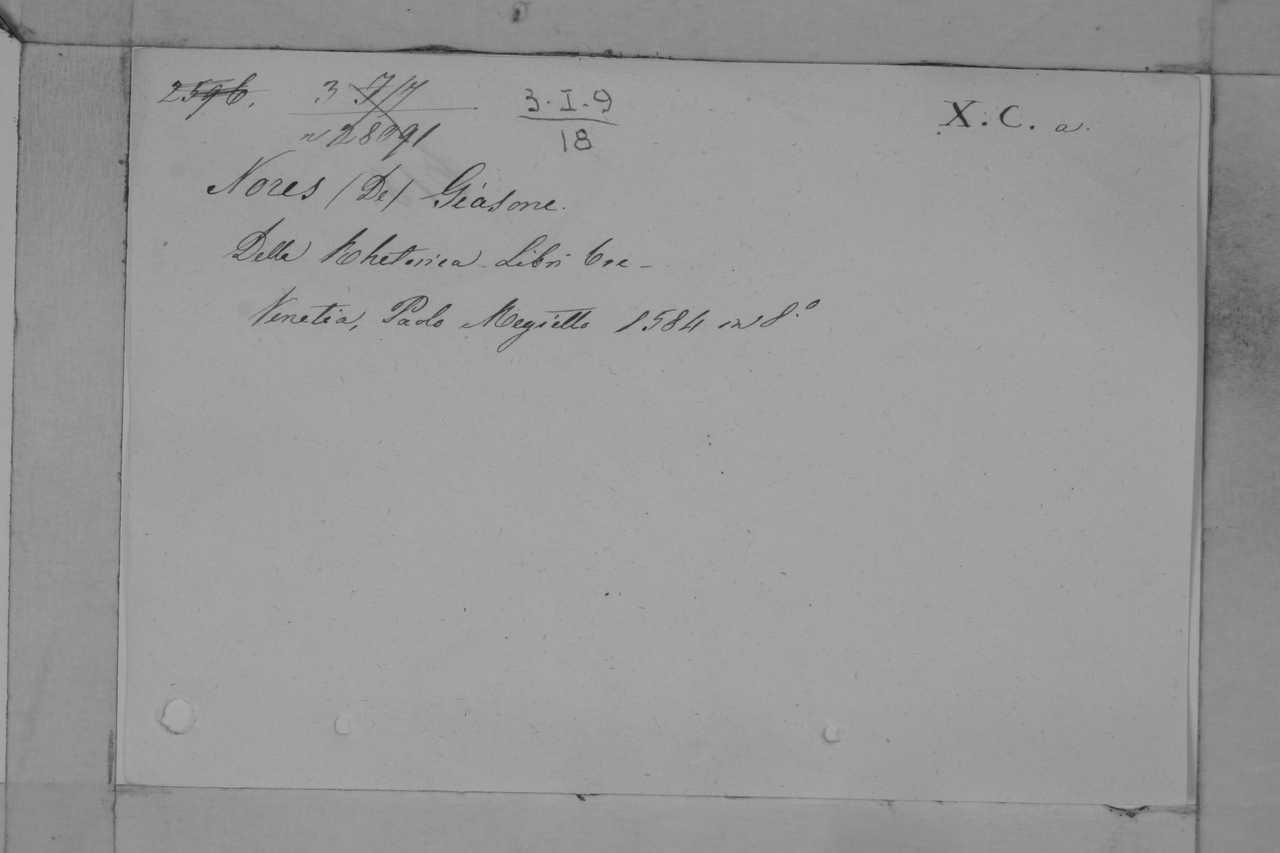 2596. 3 7/7 3·I·9 X.C. a.
n 28291 18
Nores (De) Giasone.
Della Rhetorica Libri tre -
Venetia, Paolo Megietto 1584 in 8.º